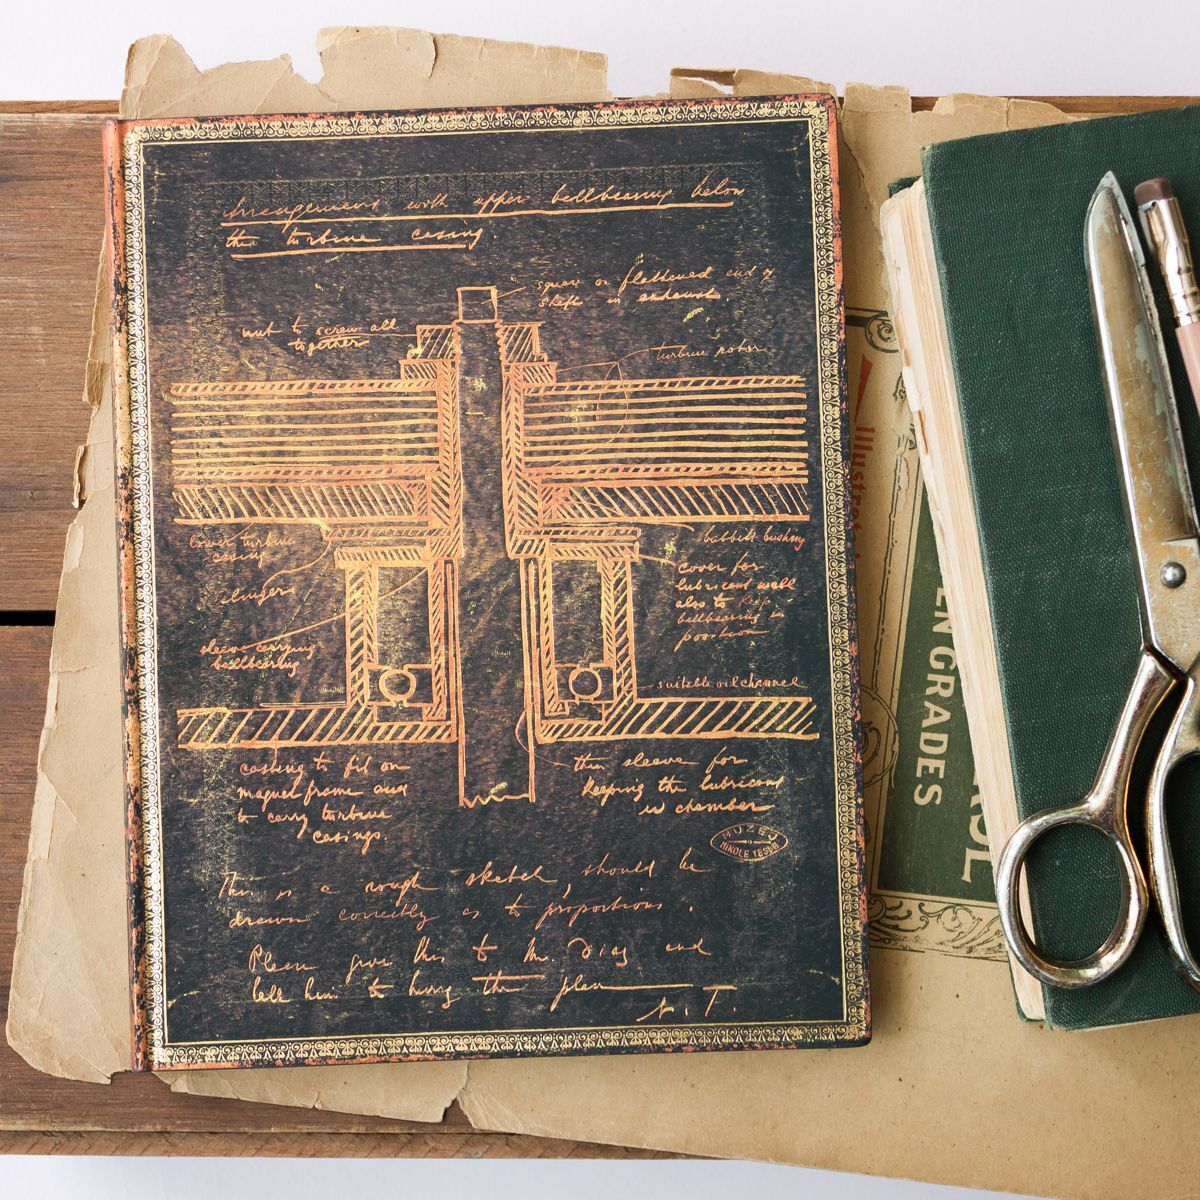 Arrangement with upper ballbearing below
the turbine casing
square or flattened end of
shaft in exhaust.
nut to screw all
together
turbine rotor
lower turbine
casing
slinger
babbitt bushing
cover for
lubricant well
also to keep
ballbearing in
position
sleeve carrying
ballbearing
suitable oil channel
casting to fit on
magnet frame and
to carry turbine
casings.
thin sleeve for
keeping the lubricant
in chamber
MUZEJ
NIKOLE TESLE
This is a rough sketch, should be
drawn correctly as to proportions.
Please give this to Mr. Diaz and
tell him to hurry the plan
N. T.
Illustrat
EN GRADES